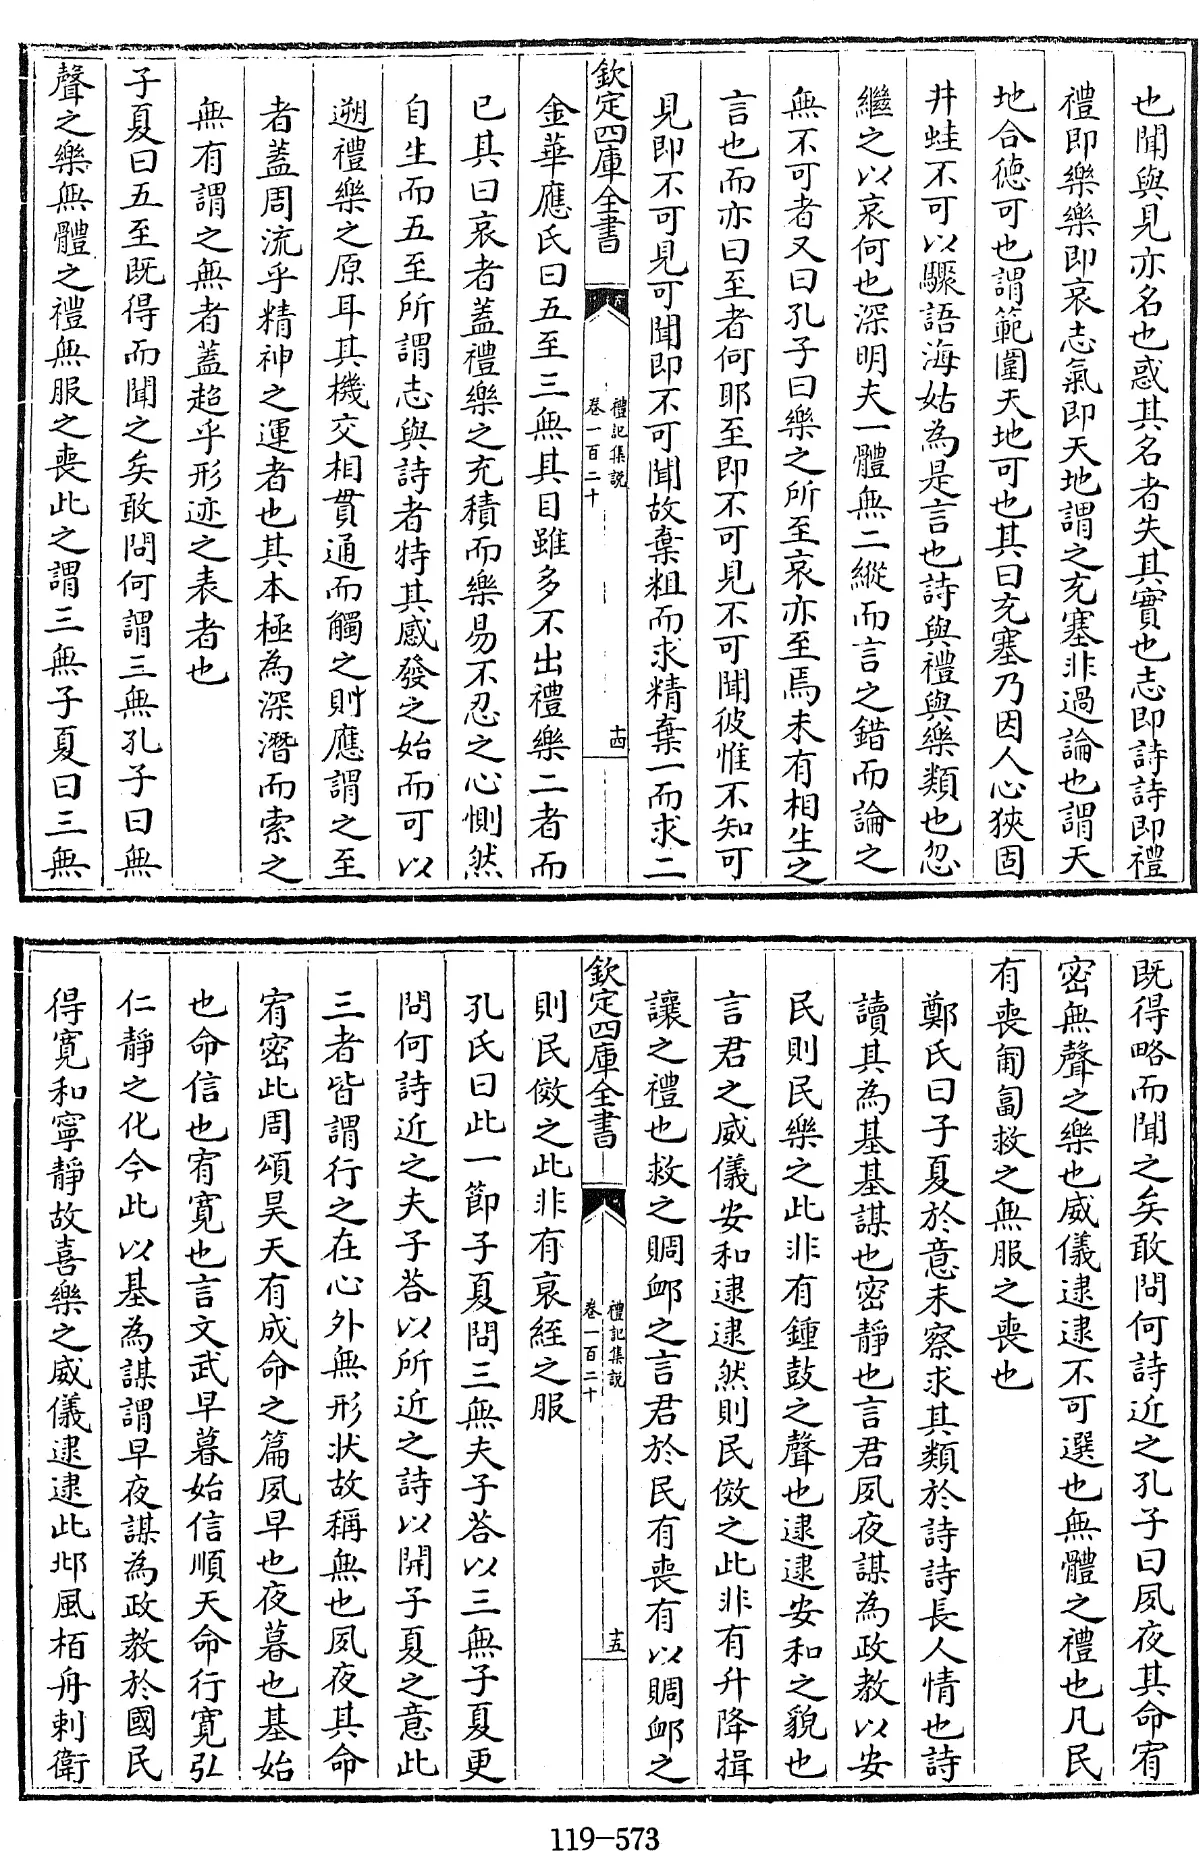 也聞與見亦名也惑其名者失其實也志即詩詩即禮
禮即樂樂即哀志氣即天地謂之充塞非過論也謂天
地合徳可也謂範圍天地可也其曰充塞乃因人心狹固
井蛙不可以驟語海姑為是言也詩與禮與樂類也忽
繼之以哀何也深明夫一體無二縱而言之錯而論之
無不可者又曰孔子曰樂之所至哀亦至焉未有相生之
言也而亦曰至者何耶至即不可見不可聞彼惟不知可
見即不可見可聞即不可聞故棄粗而求精棄一而求二
欽定四庫全書
禮記集説
卷一百二十
十四
金華應氏曰五至三無其目雖多不出禮樂二者而
已其曰哀者蓋禮樂之充積而樂易不忍之心惻然
自生而五至所謂志與詩者特其感發之始而可以
遡禮樂之原耳其機交相貫通而觸之則應謂之至
者蓋周流乎精神之運者也其本極為深潛而索之
無有謂之無者蓋超乎形迹之表者也
子夏曰五至既得而聞之矣敢問何謂三無孔子曰無
聲之樂無體之禮無服之喪此之謂三無子夏曰三無
既得略而聞之矣敢問何詩近之孔子曰夙夜其命宥
密無聲之樂也威儀逮逮不可選也無體之禮也凡民
有喪匍匐救之無服之喪也
鄭氏曰子夏於意未察求其類於詩詩長人情也詩
讀其為基基謀也密靜也言君夙夜謀為政教以安
民則民樂之此非有鍾鼓之聲也逮逮安和之貌也
言君之威儀安和逮逮然則民傚之此非有升降揖
讓之禮也救之賙卹之言君於民有喪有以賙卹之
欽定四庫全書
禮記集説
卷一百二十
十五
則民傚之此非有衰絰之服
孔氏曰此一節子夏問三無夫子荅以三無子夏更
問何詩近之夫子荅以所近之詩以開子夏之意此
三者皆謂行之在心外無形狀故稱無也夙夜其命
宥密此周頌昊天有成命之篇夙早也夜暮也基始
也命信也宥寛也言文武早暮始信順天命行寛弘
仁靜之化今此以基為謀謂早夜謀為政教於國民
得寛和寧靜故喜樂之威儀逮逮此邶風栢舟刺衛
119-573